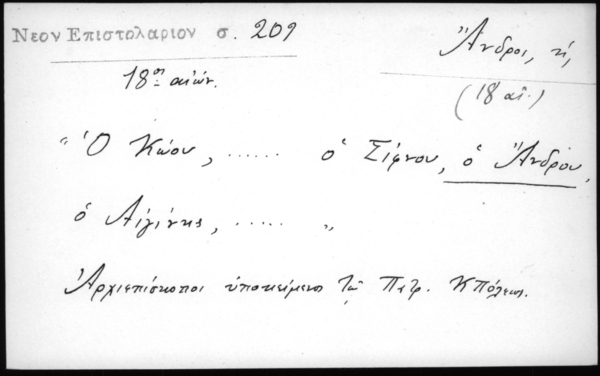 Νεον Επιστολαριον σ. 209
Ἄνδρου, ἡ,
18ος αἰών.
(18 αἰ.)
"Ὁ Κώου, ...... ὁ Σίφνου, ὁ Ἄνδρου,
ὁ Αἰγίνης, ..... "
Ἀρχιεπίσκοποι ὑποκείμενοι τῷ Πατρ. ΚΠόλεως.